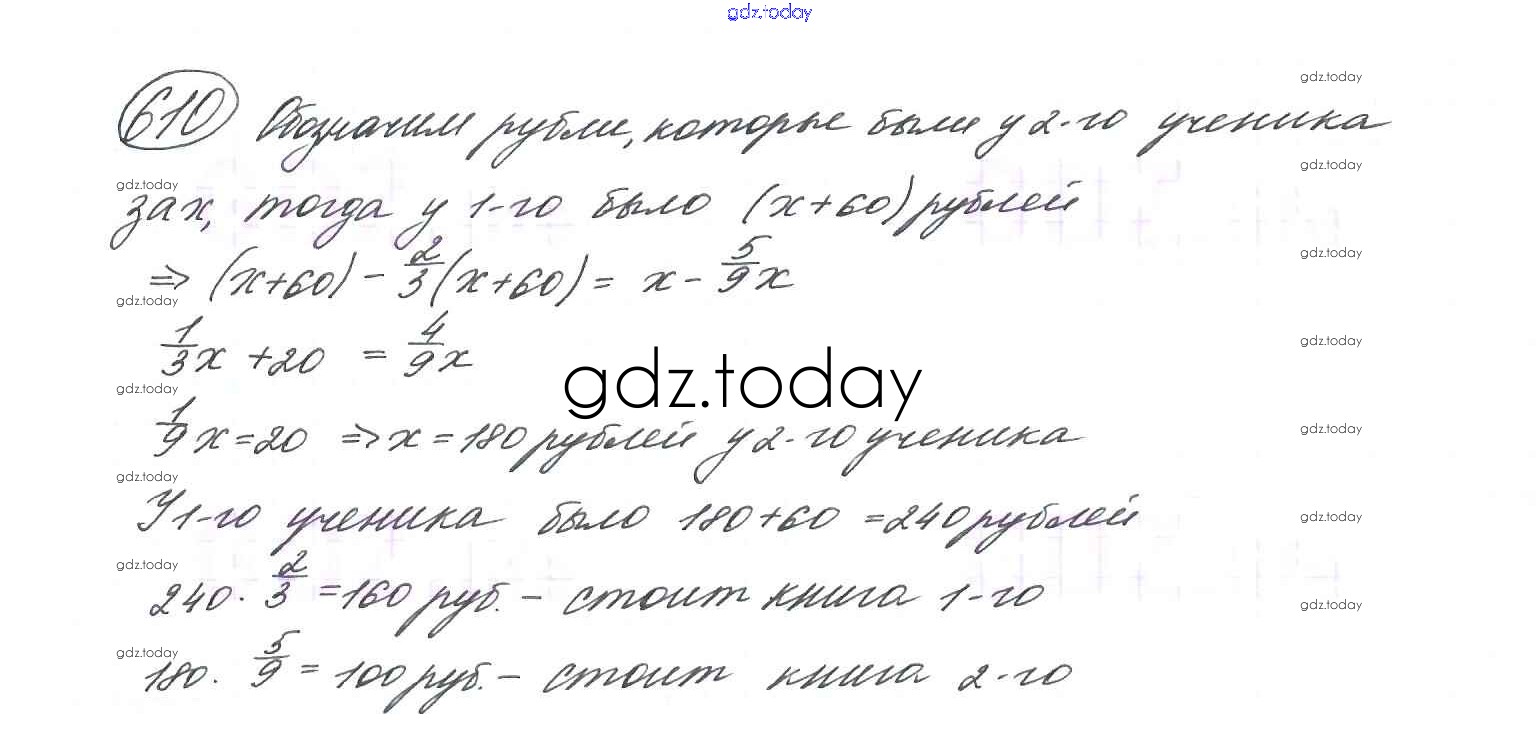 gdz.today
gdz.today
610 Обозначим рубли, которые были у 2-го ученика
gdz.today
gdz.today
за x, тогда у 1-го было (x+60) рублей
gdz.today
⇒ (x+60) - 2/3(x+60) = x - 5/9x
gdz.today
gdz.today
1/3x + 20 = 4/9x
gdz.today
gdz.today
gdz.today
1/9x = 20 ⇒ x = 180 рублей у 2-го ученика
gdz.today
У 1-го ученика было 180+60 = 240 рублей
gdz.today
gdz.today
240 · 2/3 = 160 руб. - стоит книга 1-го
gdz.today
gdz.today
180 · 5/9 = 100 руб. - стоит книга 2-го
gdz.today